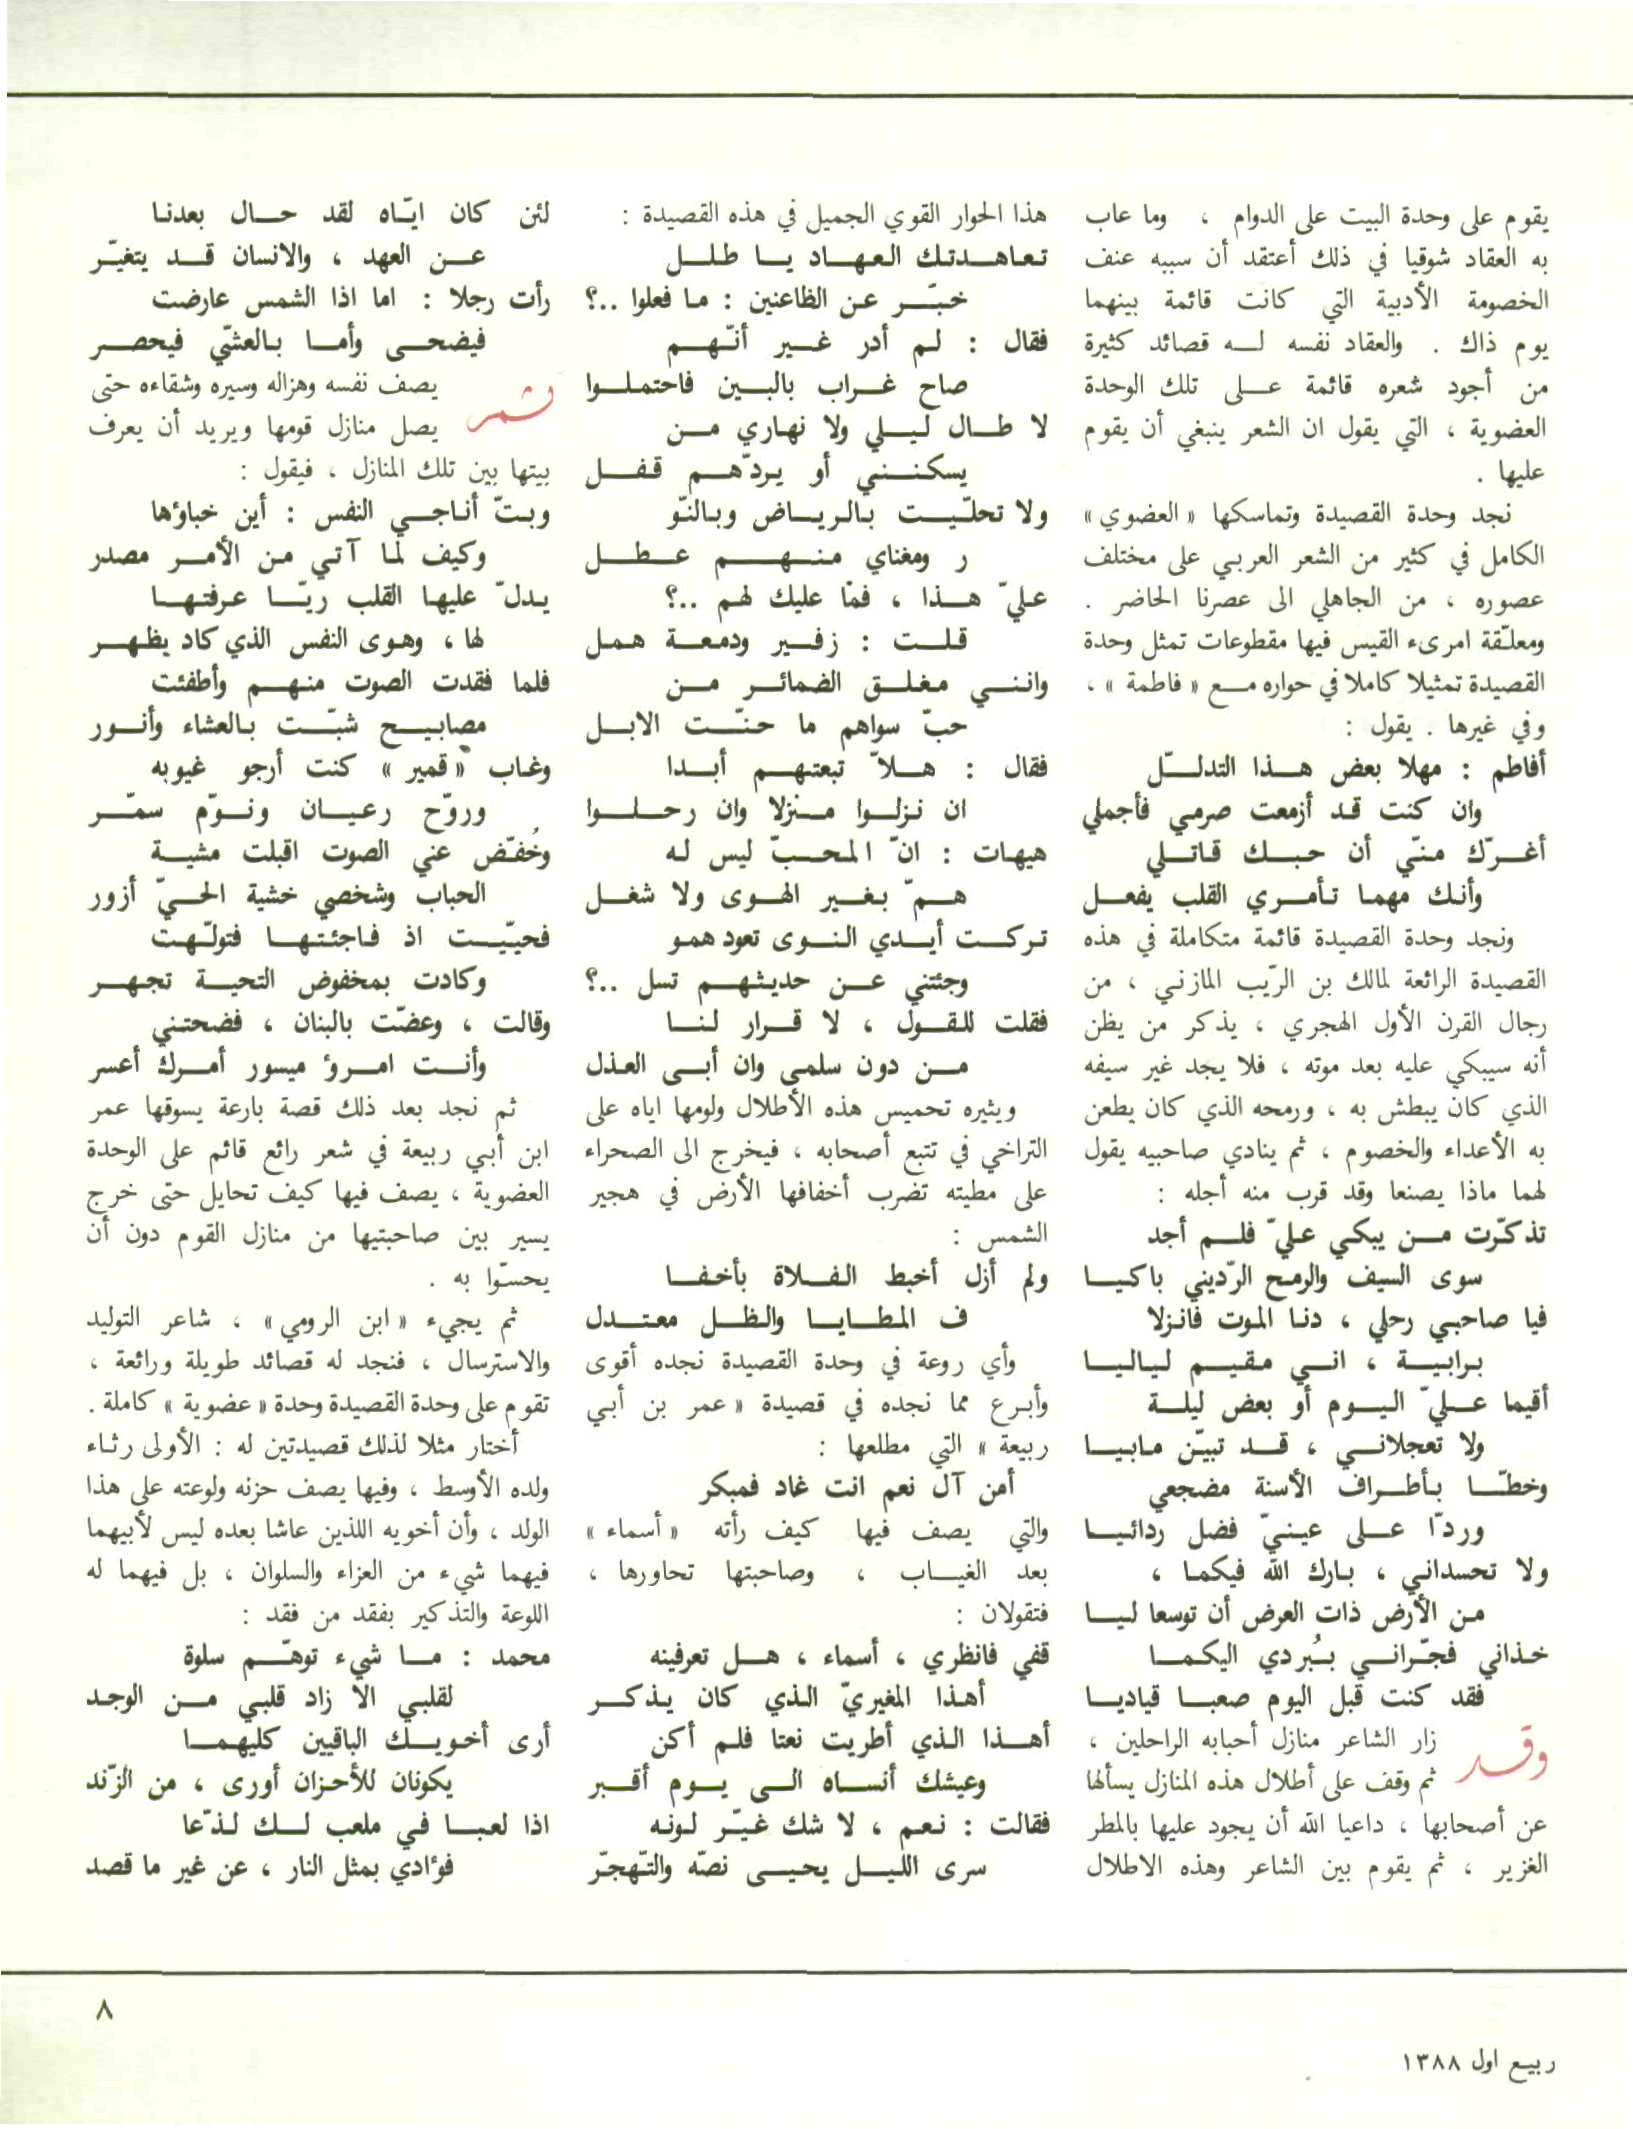 يقوم على وحدة البيت على الدوام ، وما عاب
به العقاد شوقيا في ذلك أعتقد أن سببه عنف
الخصومة الأدبية التي كانت قائمة بينهما
يوم ذاك . والعقاد نفسه له قصائد كثيرة
من أجود شعره قائمة على تلك الوحدة
العضوية ، التي يقول ان الشعر ينبغي أن يقوم
عليها .
نجد وحدة القصيدة وتماسكها « العضوي »
الكامل في كثير من الشعر العربي على مختلف
عصوره ، من الجاهلي الى عصرنا الحاضر .
ومعلّقة امرىء القيس فيها مقطوعات تمثل وحدة
القصيدة تمثيلا كاملا في حواره مع « فاطمة » ،
وفي غيرها . يقول :
أفاطم : مهلا بعض هذا التدلّل
وان كنت قد أزمعت صرمي فأجملي
أغرّك منّي أن حبك قاتلي
وأنك مهما تأمري القلب يفعل
ونجد وحدة القصيدة قائمة متكاملة في هذه
القصيدة الرائعة لمالك بن الرّيب المازني ، من
رجال القرن الأول الهجري ، يذكر من يظن
أنه سيبكي عليه بعد موته ، فلا يجد غير سيفه
الذي كان يبطش به ، ورمحه الذي كان يطعن
به الأعداء والخصوم ، ثم ينادي صاحبيه يقول
لهما ماذا يصنعا وقد قرب منه أجله :
تذكّرت من يبكي عليّ فلم أجد
سوى السيف والرمح الرّديني باكيا
فيا صاحبي رحلي ، دنا الموت فانزلا
برابية ، اني مقيم لياليا
أقيما عليّ اليوم أو بعض ليلة
ولا تعجلاني ، قد تبيّن مابيا
وخطّا بأطراف الأسنة مضجعي
وردّا على عينيّ فضل ردائيا
ولا تحسداني ، بارك الله فيكما ،
من الأرض ذات العرض أن توسعا ليا
خذاني فجّراني ببُردي اليكما
فقد كنت قبل اليوم صعبا قياديا
وقد زار الشاعر منازل أحبابه الراحلين ،
ثم وقف على أطلال هذه المنازل يسألها
عن أصحابها ، داعيا الله أن يجود عليها بالمطر
الغزير ، ثم يقوم بين الشاعر وهذه الاطلال
هذا الحوار القوي الجميل في هذه القصيدة :
تعاهدتك العهاد يا طلل
خبّر عن الظاعنين : ما فعلوا ..؟
فقال : لم أدر غير أنّهم
صاح غراب بالبين فاحتملوا
لا طال ليلي ولا نهاري من
يسكنني أو يردّهم قفل
ولا تحلّيت بالرياض وبالنّو
ر ومغناي منهم عطل
عليّ هذا ، فمّا عليك لهم ..؟
قلت : زفير ودمعة همل
وانني مغلق الضمائر من
حبّ سواهم ما حنّت الابل
فقال : هلاّ تبعتهم أبدا
ان نزلوا منزلا وان رحلوا
هيهات : انّ المحبّ ليس له
همّ بغير الهوى ولا شغل
تركت أيدي النوى تعود همو
وجئتني عن حديثهم تسل ..؟
فقلت للقول ، لا قرار لنا
من دون سلمى وان أبى العذل
ويثيره تحميس هذه الأطلال ولومها اياه على
التراخي في تتبع أصحابه ، فيخرج الى الصحراء
على مطيته تضرب أخفافها الأرض في هجير
الشمس :
ولم أزل أخبط الفلاة بأخفا
ف المطايا والظل معتدل
وأي روعة في وحدة القصيدة نجده أقوى
وأبرع مما نجده في قصيدة « عمر بن أبي
ربيعة » التي مطلعها :
أمن آل نعم انت غاد فمبكر
والتي يصف فيها كيف رأته « أسماء »
بعد الغياب ، وصاحبتها تحاورها ،
فتقولان :
قفي فانظري ، أسماء ، هل تعرفينه
أهذا المغيريّ الذي كان يذكر
أهذا الذي أطريت نعتا فلم أكن
وعيشك أنساه الى يوم أقبر
فقالت : نعم ، لا شك غيّر لونه
سرى الليل يحيى نصّه والتّهجّر
لئن كان ايّاه لقد حال بعدنا
عن العهد ، والانسان قد يتغيّر
رأت رجلا : اما اذا الشمس عارضت
فيضحى وأما بالعشّي فيحصر
ثم يصف نفسه وهزاله وسيره وشقاءه حتى
يصل منازل قومها ويريد أن يعرف
بيتها بين تلك المنازل ، فيقول :
وبتّ أناجي النفس : أين خباؤها
وكيف لمّا آتي من الأمر مصدر
يدلّ عليها القلب ريّا عرفتها
لها ، وهوى النفس الذي كاد يظهر
فلما فقدت الصوت منهم وأطفئت
مصابيح شبّت بالعشاء وأنور
وغاب « قمير » كنت أرجو غيوبه
وروّح رعيان ونوّم سمّر
وخُفّض عني الصوت اقبلت مشية
الحباب وشخصي خشية الحيّ أزور
فحيّيت اذ فاجئتها فتولّهت
وكادت بمخفوض التحية تجهر
وقالت ، وعضّت بالبنان ، فضحتني
وأنت امرؤ ميسور أمرك أعسر
ثم نجد بعد ذلك قصة بارعة يسوقها عمر
ابن أبي ربيعة في شعر رائع قائم على الوحدة
العضوية ، يصف فيها كيف تحايل حتى خرج
يسير بين صاحبتيها من منازل القوم دون أن
يحسّوا به .
ثم يجيء « ابن الرومي » ، شاعر التوليد
والاسترسال ، فنجد له قصائد طويلة ورائعة ،
تقوم على وحدة القصيدة وحدة « عضوية » كاملة .
أختار مثلا لذلك قصيدتين له : الأولى رثاء
ولده الأوسط ، وفيها يصف حزنه ولوعته على هذا
الولد ، وأن أخويه اللذين عاشا بعده ليس لأبيهما
فيهما شيء من العزاء والسلوان ، بل فيهما له
اللوعة والتذكير بفقد من فقد :
محمد : ما شيء توهّم سلوة
لقلبي الا زاد قلبي من الوجد
أرى أخويك الباقيين كليهما
يكونان للأحزان أورى ، من الزّند
اذا لعبا في ملعب لك لذّعا
فؤادي بمثل النار ، عن غير ما قصد
٨
ربيع اول ١٣٨٨